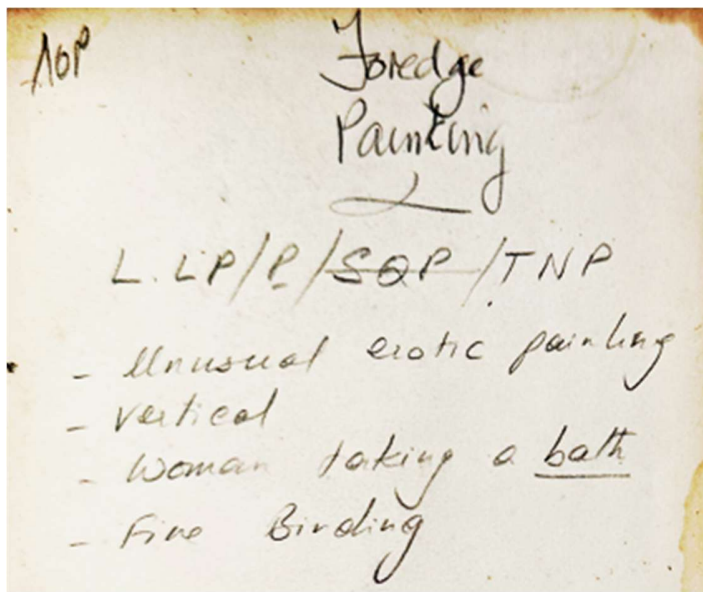 AOP
Foredge
Painting
L.LP/P/SQP/TNP
- Unusual erotic painting
- Vertical
- Woman taking a bath
- Fine Binding